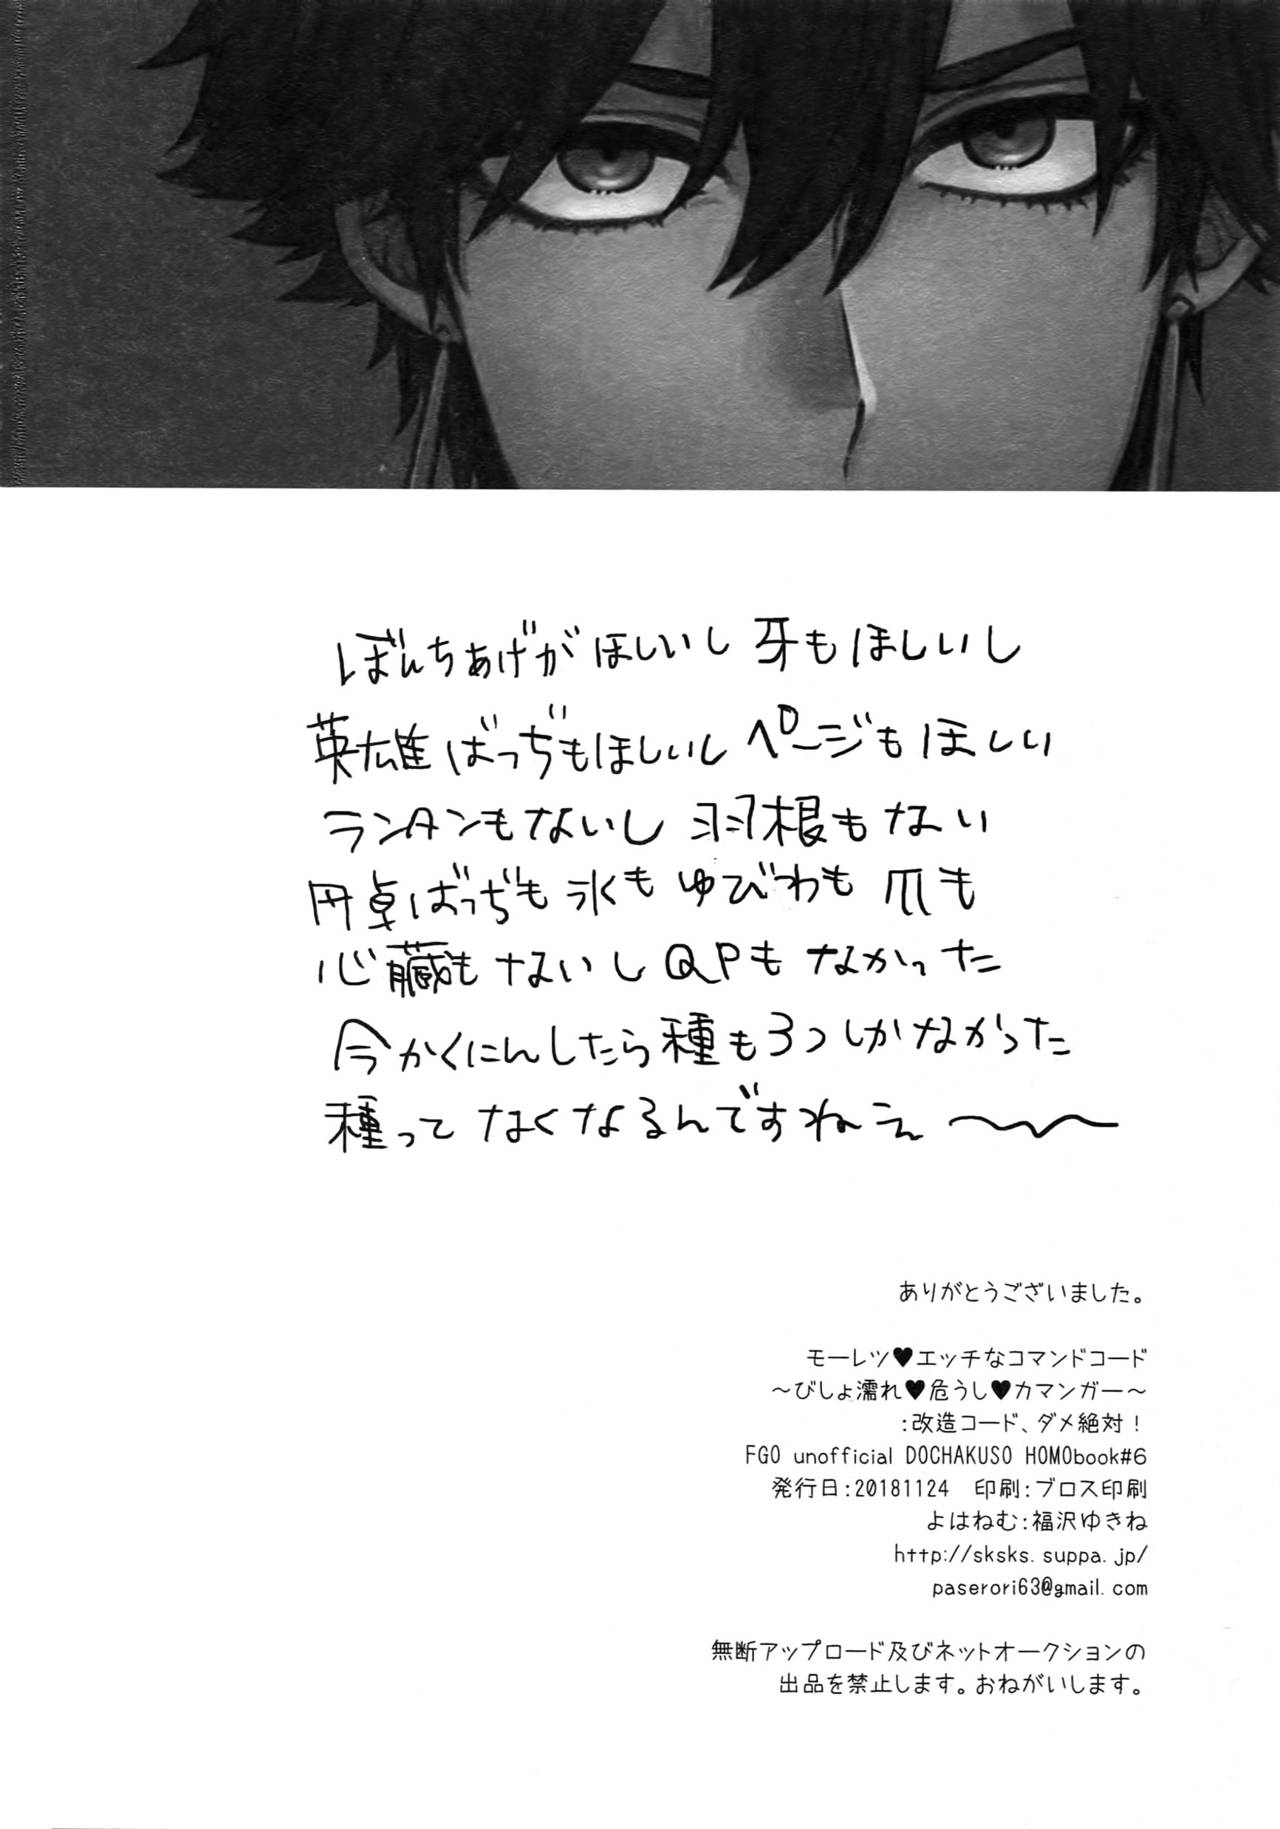 ぼんちあげがほしいし 牙もほしいし
英雄ばっぢもほしいし ページもほしい
ランタンもないし 羽根もない
円卓ばっぢも 氷も ゆびわも 爪も
心臓もないし QPもなかった
今かくにんしたら種も3つしかなかった
種って なくなるんですねえ〜〜
ありがとうございました。
モーレツ♥エッチなコマンドコード
～びしょ濡れ♥危うし♥カマンガー～
:改造コード、ダメ絶対！
FGO unofficial DOCHAKUSO HOMObook#6
発行日:20181124　印刷:ブロス印刷
よはねむ:福沢ゆきね
http://sksks.suppa.jp/
paserori63@gmail.com
無断アップロード及びネットオークションの
出品を禁止します。おねがいします。